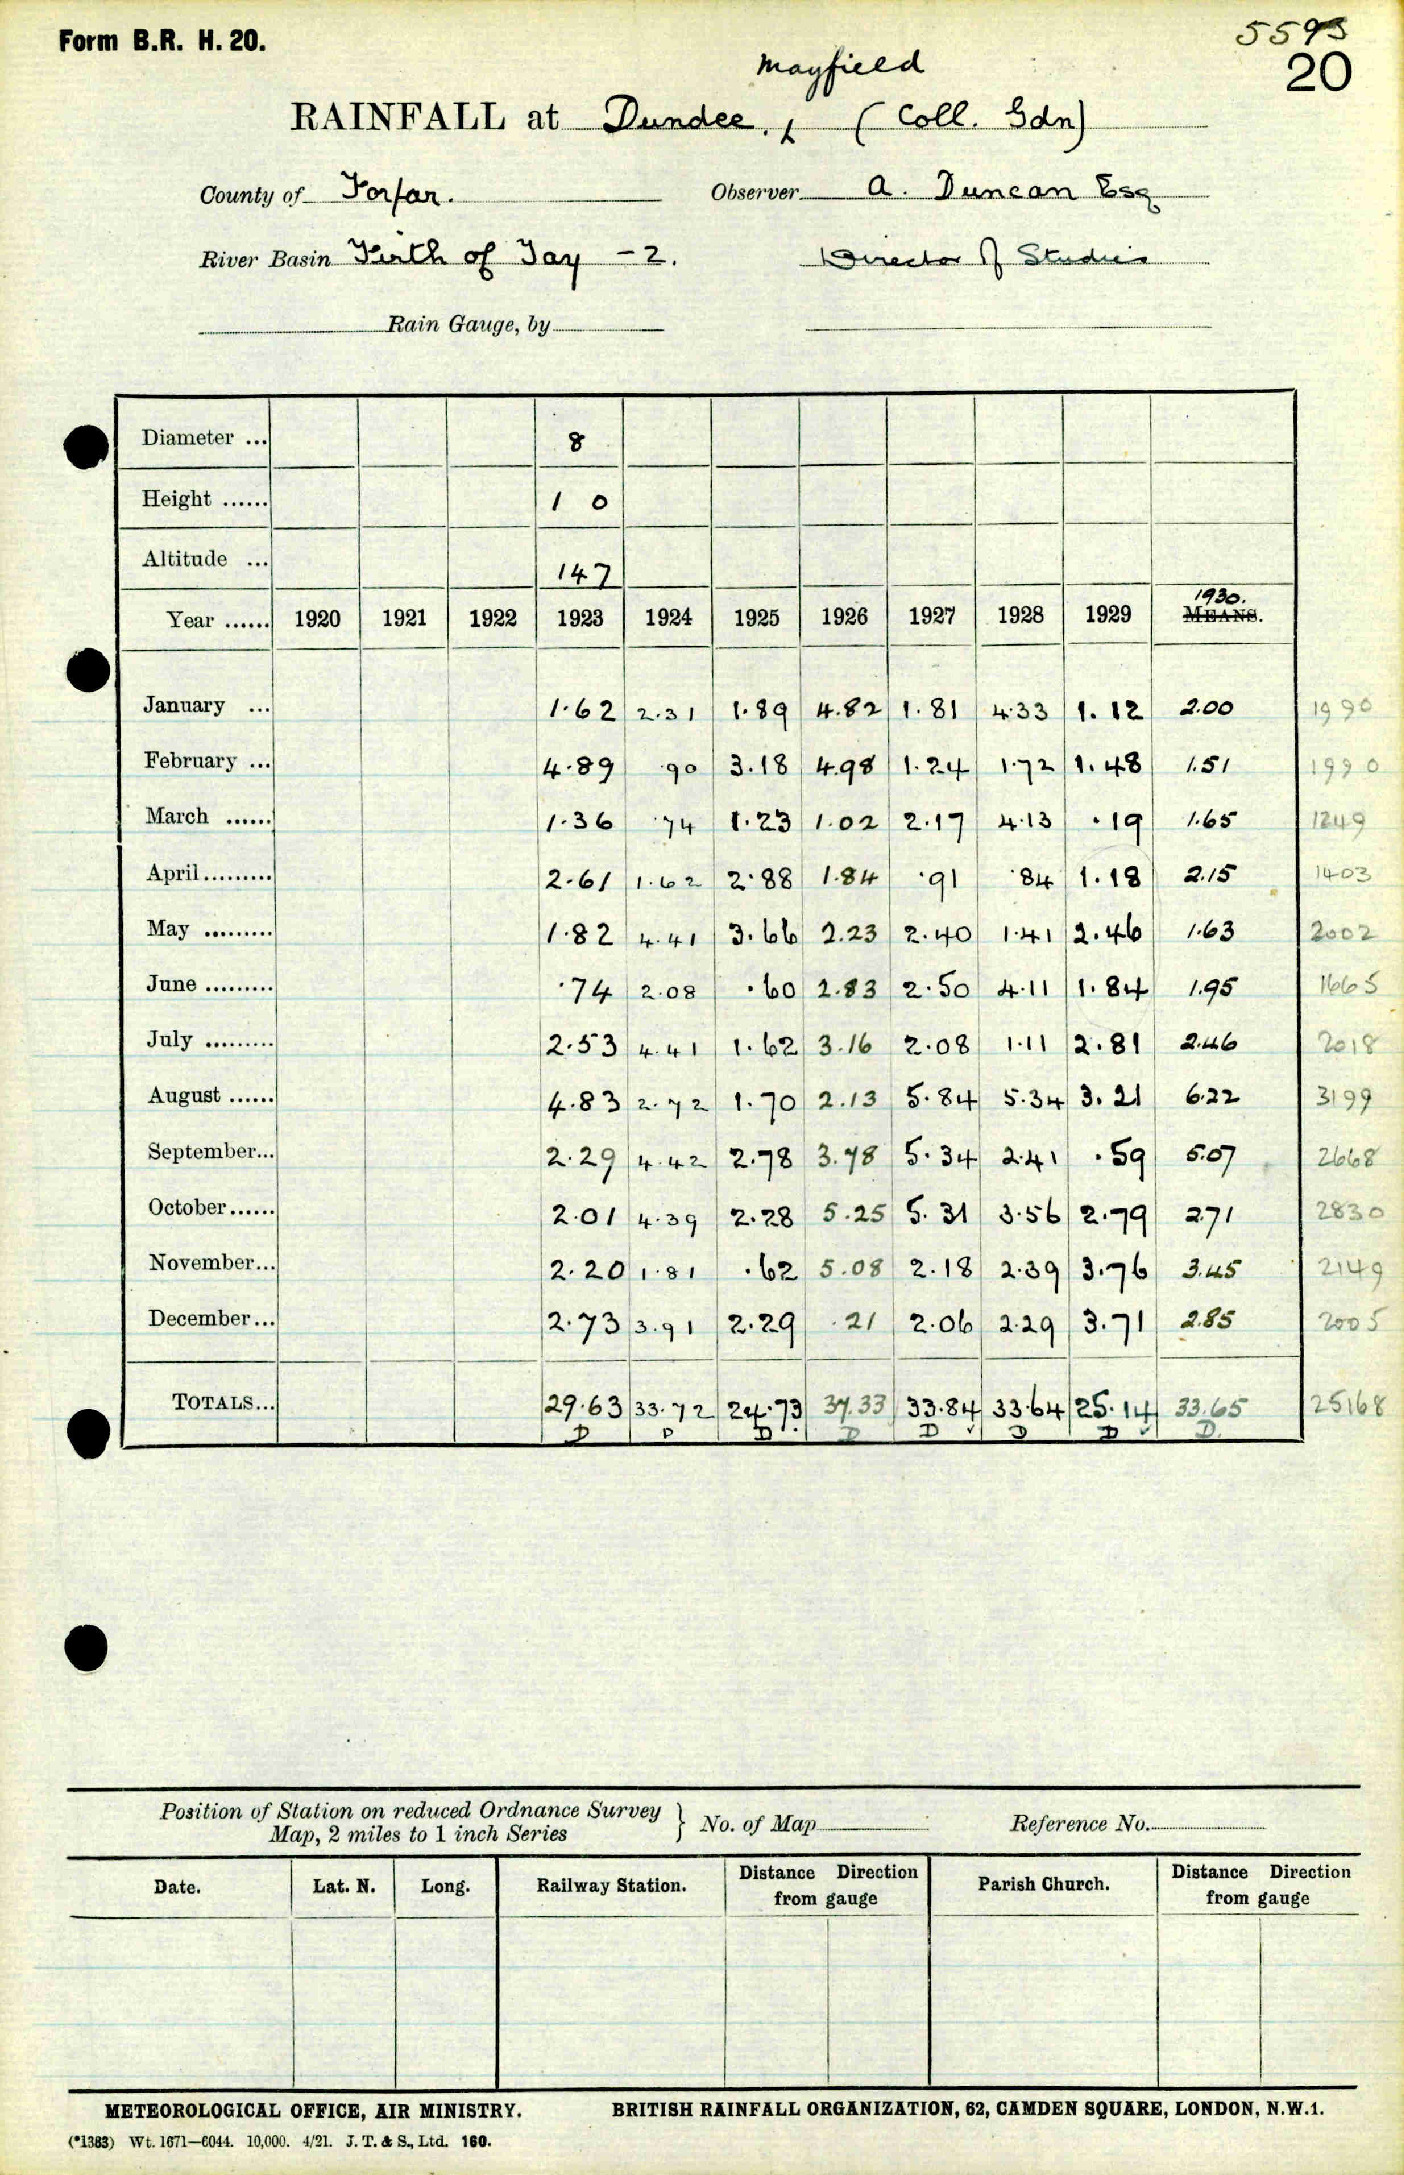 Form B.R. H. 20.
5593
20
Mayfield
RAINFALL at Dundee, (Coll. Gdn)
County of Forfar. Observer A. Duncan Esq
River Basin Firth of Tay - 2. Director of Studies
Rain Gauge, by
Diameter ... 8
Height ...... 1 0
Altitude ... 147
1930.
Year ...... 1920 1921 1922 1923 1924 1925 1926 1927 1928 1929 MEANS.
January ... 1.62 2.31 1.89 4.82 1.81 4.33 1.12 2.00 1990
February ... 4.89 .90 3.18 4.98 1.24 1.72 1.48 1.51 1990
March ...... 1.36 .74 1.23 1.02 2.17 4.13 .19 1.65 1249
April......... 2.61 1.62 2.88 1.84 .91 .84 1.18 2.15 1403
May ......... 1.82 4.41 3.66 2.23 2.40 1.41 2.46 1.63 2002
June ......... .74 2.08 .60 2.83 2.50 4.11 1.84 1.95 1665
July ......... 2.53 4.41 1.62 3.16 2.08 1.11 2.81 2.46 2018
August ...... 4.83 2.72 1.70 2.13 5.84 5.34 3.21 6.22 3199
September... 2.29 4.42 2.78 3.78 5.34 2.41 .59 5.07 2668
October...... 2.01 4.39 2.28 5.25 5.31 3.56 2.79 2.71 2830
November... 2.20 1.81 .62 5.08 2.18 2.39 3.76 3.45 2149
December... 2.73 3.91 2.29 .21 2.06 2.29 3.71 2.85 2005
TOTALS... 29.63 33.72 24.73 37.33 33.84 33.64 25.14 33.65 25168
D D D D D ✓ D D ✓ D.
Position of Station on reduced Ordnance Survey
Map, 2 miles to 1 inch Series } No. of Map Reference No.
Date. Lat. N. Long. Railway Station. Distance Direction from gauge Parish Church. Distance Direction from gauge
METEOROLOGICAL OFFICE, AIR MINISTRY. BRITISH RAINFALL ORGANIZATION, 62, CAMDEN SQUARE, LONDON, N.W.1.
(*1383) Wt. 1671—6044. 10,000. 4/21. J. T. & S., Ltd. 160.